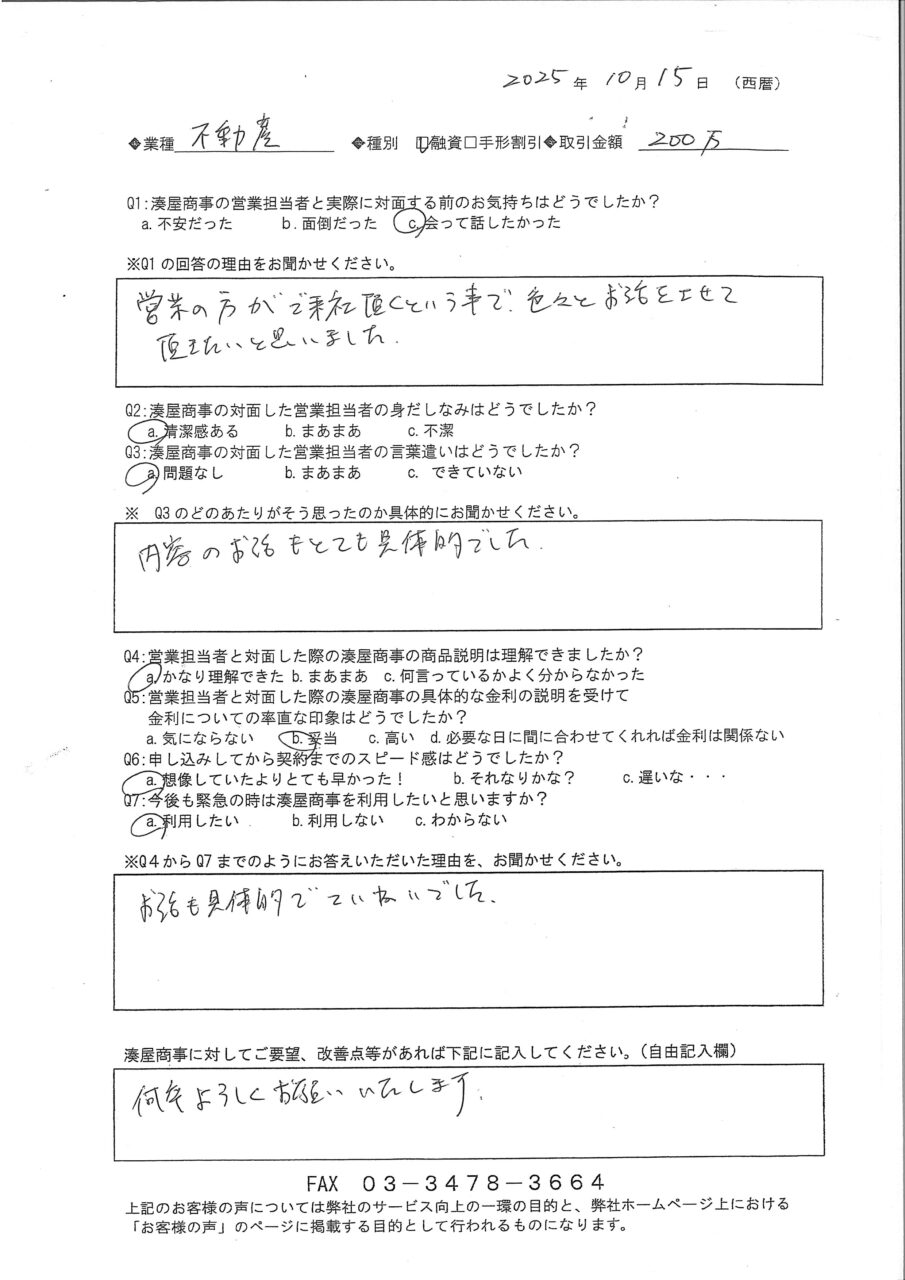 2025年 10月 15日 (西暦)
◆業種 不動産 ◆種別 □融資□手形割引◆取引金額 200万
Q1:湊屋商事の営業担当者と実際に対面する前のお気持ちはどうでしたか？
a.不安だった b.面倒だった c.会って話したかった
※Q1の回答の理由をお聞かせください。
営業の方がご来社頂くという事で、色々とお話をさせて
頂きたいと思いました.
Q2:湊屋商事の対面した営業担当者の身だしなみはどうでしたか？
a.清潔感ある b.まあまあ c.不潔
Q3:湊屋商事の対面した営業担当者の言葉遣いはどうでしたか？
a.問題なし b.まあまあ c. できていない
※ Q3のどのあたりがそう思ったのか具体的にお聞かせください。
内容のお話もとても具体的でした.
Q4:営業担当者と対面した際の湊屋商事の商品説明は理解できましたか？
a.かなり理解できた b.まあまあ c.何言っているかよく分からなかった
Q5:営業担当者と対面した際の湊屋商事の具体的な金利の説明を受けて
金利についての率直な印象はどうでしたか？
a.気にならない b.妥当 c.高い d.必要な日に間に合わせてくれれば金利は関係ない
Q6:申し込みしてから契約までのスピード感はどうでしたか？
a.想像していたよりとても早かった！ b.それなりかな？ c.遅いな・・・
Q7:今後も緊急の時は湊屋商事を利用したいと思いますか？
a.利用したい b.利用しない c.わからない
※Q4からQ7までのようにお答えいただいた理由を、お聞かせください。
お話も具体的でていねいでした.
湊屋商事に対してご要望、改善点等があれば下記に記入してください。(自由記入欄)
何卒よろしくお願いいたします.
FAX 03-3478-3664
上記のお客様の声については弊社のサービス向上の一環の目的と、弊社ホームページ上における
「お客様の声」のページに掲載する目的として行われるものになります。